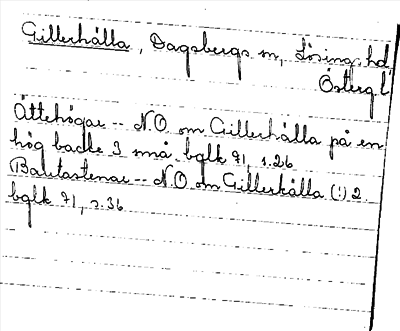 Gillerhålla, Dagsbergs sn, Lösings hd
Österg l
Ättehögar -- N.O. om Gillerhålla på en
hög backe 3 små. bglk 71, s. 26
Bautastenar -- N.O. om Gillerhålla (:) 2
bglk 71, s. 36